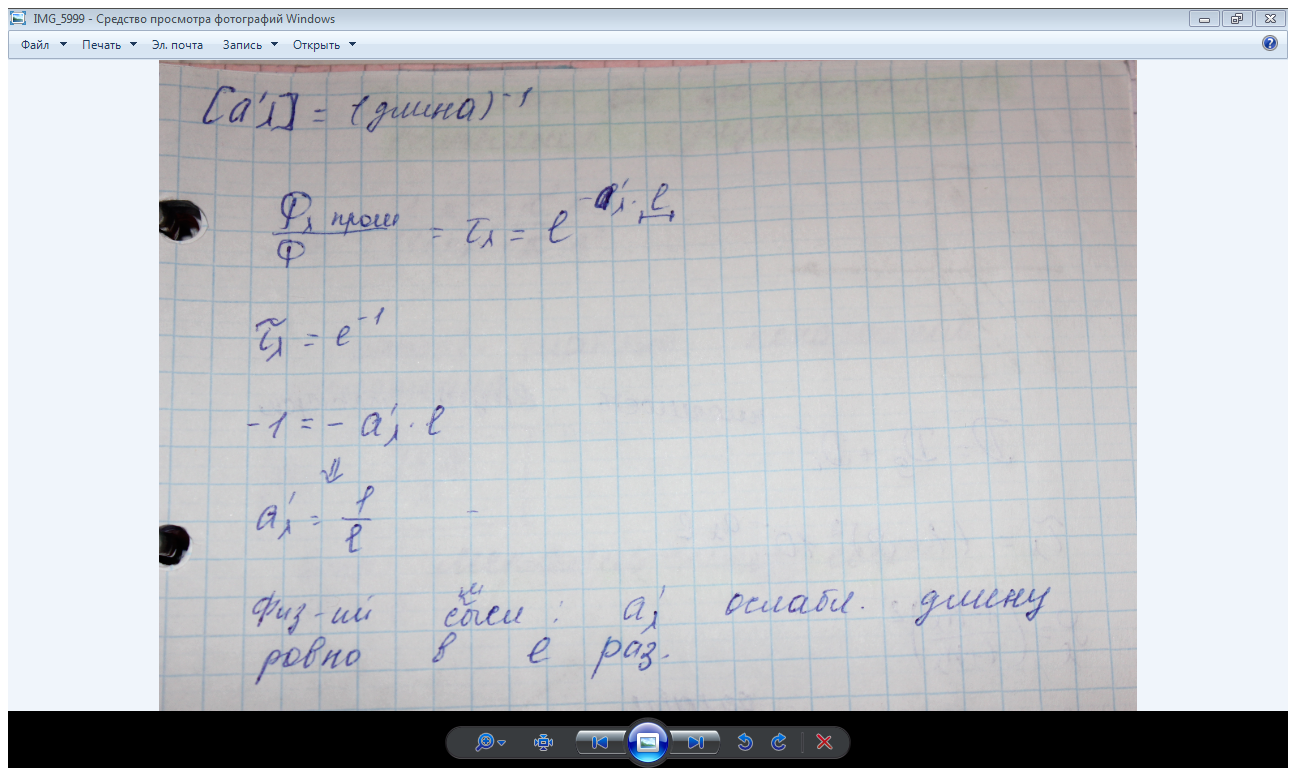 IMG_5999 - Средство просмотра фотографий Windows
Файл Печать Эл. почта Запись Открыть
[a'λ] = (длина)⁻¹
Φλ прош / Φ = τλ = e^(-a'λ · l)
τλ = e⁻¹
-1 = - a'λ · l
⇓
a'λ = 1/l
Физ-ий смысл : a'λ ослабл. длину
ровно в e раз.